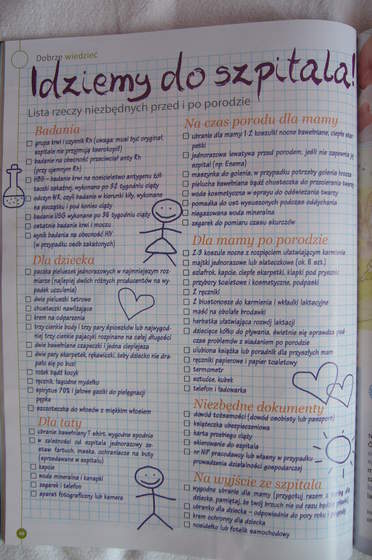 Dobrze wiedzieć
Idziemy do szpitala!
Lista rzeczy niezbędnych przed i po porodzie
Badania
grupa krwi i czynnik Rh (uwaga: musi być oryginał,
szpitale nie przyjmują kserokopii!)
badanie na obecność przeciwciał anty Rh
(przy ujemnym Rh)
HBS – badanie krwi na nosicielstwo antygenu żół-
taczki zakaźnej, wykonane po 32 tygodniu ciąży
odczyn WR, czyli badanie w kierunku kiły, wykonane
na początku i pod koniec ciąży
badanie USG wykonane po 36 tygodniu ciąży
ostatnie badanie krwi i moczu
wynik badania na obecność HIV
(w przypadku osób zakażonych)
Dla dziecka
paczka pieluszek jednorazowych w najmniejszym roz-
miarze (najlepiej dwóch różnych producentów na wy-
padek uczulenia)
dwie pieluszki tetrowe
chusteczki nawilżające
krem na odparzenia
trzy cienkie body i trzy pary śpioszków lub najwygod-
niej trzy cienkie pajacyki rozpinane na całej długości
dwie bawełniane czapeczki i jedna cieplejsza
dwie pary skarpetek, rękawiczki, żeby dziecko nie dra-
pało się po buzi
rożek bądź kocyk
ręcznik, łagodne mydełko
spirytus 70% i jałowe gaziki do pielęgnacji
pępka
szczoteczka do włosów z miękkim włosiem
Dla taty
ubranie bawełniany T-shirt, wygodne spodnie
w zależności od szpitala jednorazowy ze-
staw fartuch, maska, ochraniacze na buty
(sprzedawane w szpitalu)
kapcie
woda mineralna i kanapki
zegarek i telefon
aparat fotograficzny lub kamera
Na czas porodu dla mamy
ubranie dla mamy 1-2 koszulki nocne bawełniane, ciepłe skar-
petki
jednorazowa lewatywa przed porodem, jeśli nie zapewnia jej
szpital (np. Enema)
maszynka do golenia, w przypadku potrzeby golenia krocza
pielucha bawełniana bądź chusteczka do przecierania twarzy
woda kosmetyczna w sprayu do odświeżania twarzy
pomadka do ust wysuszonych podczas oddychania
niegazowana woda mineralna
zegarek do pomiaru czasu skurczów
Dla mamy po porodzie
2-3 koszule nocne z rozpięciem ułatwiającym karmienie
majtki jednorazowe lub siateczkowe (ok. 8 szt.)
szlafrok, kapcie, ciepłe skarpetki, klapki pod prysznic
przybory toaletowe i kosmetyczne, podpaski
2 ręczniki
2 biustonosze do karmienia i wkładki laktacyjne
maść na obolałe brodawki
herbatka ułatwiająca rozwój laktacji
dziecięce kółko do pływania, świetnie się sprawdza pod-
czas problemów z siadaniem po porodzie
ulubiona książka lub poradnik dla przyszłych mam
ręczniki papierowe i papier toaletowy
termometr
sztućce, kubek
telefon i ładowarka
Niezbędne dokumenty
dowód tożsamości (dowód osobisty lub paszport)
książeczka ubezpieczeniowa
karta przebiegu ciąży
skierowanie do szpitala
nr NIP pracodawcy lub własny w przypadku
prowadzenia działalności gospodarczej
Na wyjście ze szpitala
wygodne ubranie dla mamy (przygotuj razem z
dziecka, pamiętaj, że twój brzuch nie od razu będzie
ubranko dla dziecka – odpowiednio do pory roku i pogody
krem ochronny dla dziecka
nosidełko lub fotelik samochodowy